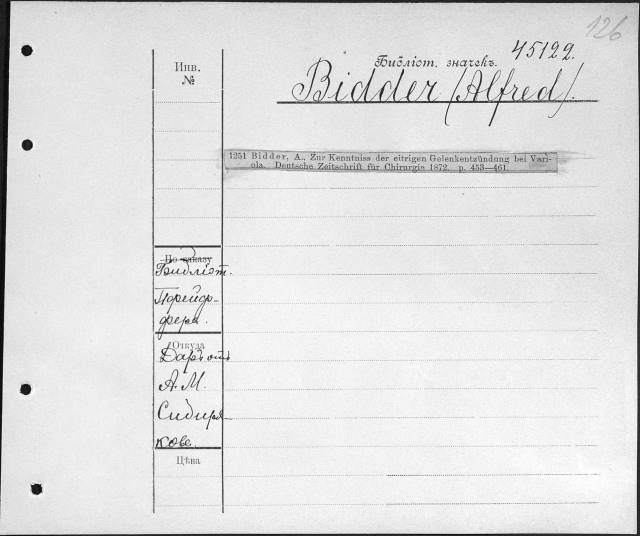 126
Инв.
№
Библіот. значекъ. 45122.
Bidder (Alfred).
1251 Bidder, A., Zur Kenntniss der eitrigen Gelenkentzündung bei Vari-
ola. Deutsche Zeitschrift für Chirurgie 1872. p. 453—461.
По заказу
Библіот.
Пфейф-
фера.
Откуда
Даръ отъ
А. М.
Сибиря-
кова.
Цѣна